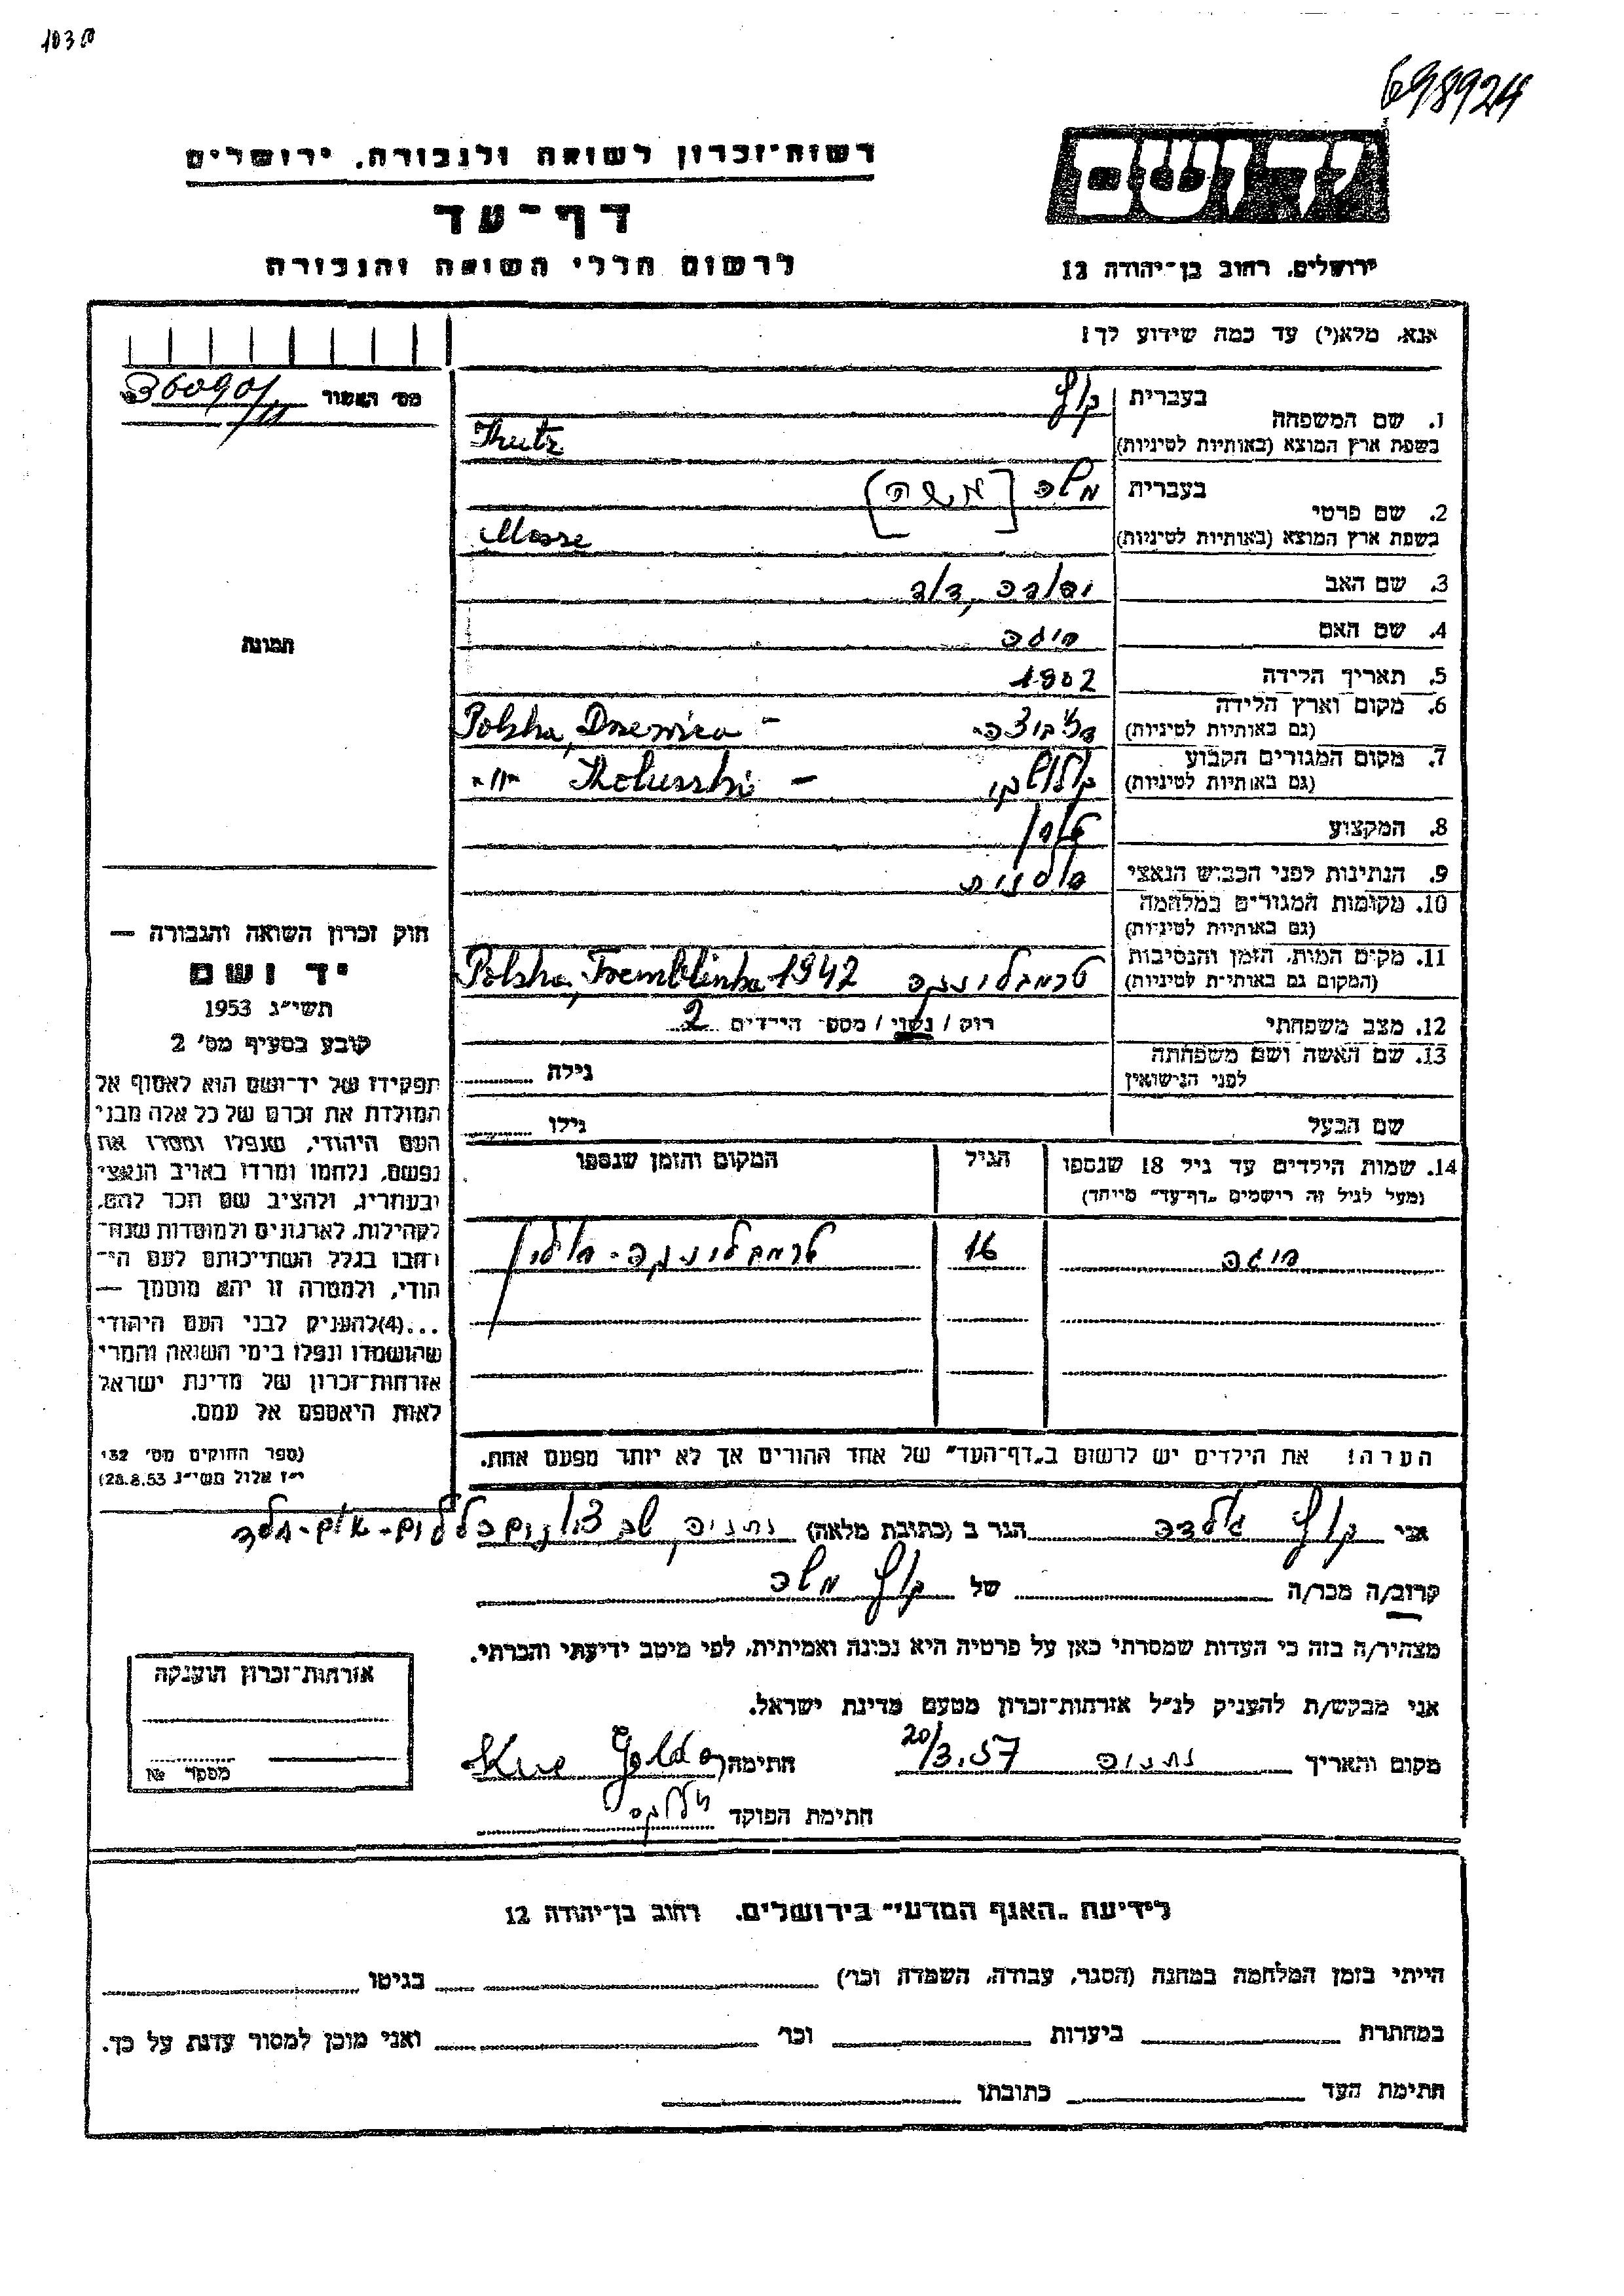 103
698924
ידושם
ירושלים. רחוב בן־יהודה 12
רשות־זכרון לשואה ולגבורה. ירושלים
דף־עד
לרשום חללי השואה והגבורה
אנא, מלא(י) עד כמה שידוע לך!
מס׳ האשור 360901/11
1. שם המשפחה
בעברית קוץ
בשפת ארץ המוצא (באותיות לטיניות) Kutz
2. שם פרטי
בעברית משה [משה]
בשפת ארץ המוצא (באותיות לטיניות) Mosze
3. שם האב
4. שם האם חיגה
5. תאריך הלידה 1902
6. מקום וארץ הלידה
(גם באותיות לטיניות) Polska,
7. מקום המגורים הקבוע
(גם באותיות לטיניות) Koluszki -
8. המקצוע
9. הנתינות לפני הכבוש הנאצי פולנית
10. מקומות המגורים במלחמה
(גם באותיות לטיניות)
11. מקום המות, הזמן והנסיבות
(המקום גם באותיות לטיניות) טרמבלינקה Polska, Tremblinka 1942
12. מצב משפחתי רוק / נשוי / מספ׳ הילדים 2
13. שם האשה ושם משפחתה
לפני הנישואין גילה
שם הבעל גילו
14. שמות הילדים עד גיל 18 שנספו הגיל המקום והזמן שנספו
(מעל לגיל זה רישמים „דף־עד” מייחד)
חיגה 16 טרמבלינקה - פולין
הערה! את הילדים יש לרשום ב„דף־העד” של אחד ההורים אך לא יותר מפעם אחת.
אני קוץ גולדה הגר ב (כתובת מלאה) נתניה,
קרוב/ה מכר/ה של קוץ משה
מצהיר/ה בזה כי העדות שמסרתי כאן על פרטיה היא נכונה ואמיתית, לפי מיטב ידיעתי והכרתי.
אני מבקש/ת להעניק לנ״ל אזרחות־זכרון מטעם מדינת ישראל.
מקום והאריך נתניה 20/3.57 חתימה Golda
חתימת הפוקד
תמונה
חוק זכרון השואה והגבורה —
יד ושם
תשי״ג 1953
קובע בסעיף מס׳ 2
תפקידו של יד־ושם הוא לאסוף אל
המולדת את זכרם של כל אלה מבני
העם היהודי, שנפלו ומסרו את
נפשם, נלחמו ומרדו באויב הנאצי
ובעוזריו, ולהציב שם וזכר להם,
לקהילות, לארגונים ולמוסדות שנח־
רבו בגלל השתייכותם לעם הי־
הודי, ולמטרה זו יהא מוסמך —
...(4) להעניק לבני העם היהודי
שהושמדו ונפלו בימי השואה והמרי
אזרחות־זכרון של מדינת ישראל
לאות היאספם אל עמם.
(ספר החוקים מס׳ 132
י״ז אלול תשי״ג 28.8.53)
אזרחות־זכרון הוענקה
מספר №
לידיעת „האגף המדעי” בירושלים. רחוב בן־יהודה 12
הייתי בזמן המלחמה במחנה (הסגר, עבודה, השמדה וכו׳) בגיטו
במחתרת ביערות וכו׳ ואני מוכן למסור עדות על כך.
חתימת העד כתובתו